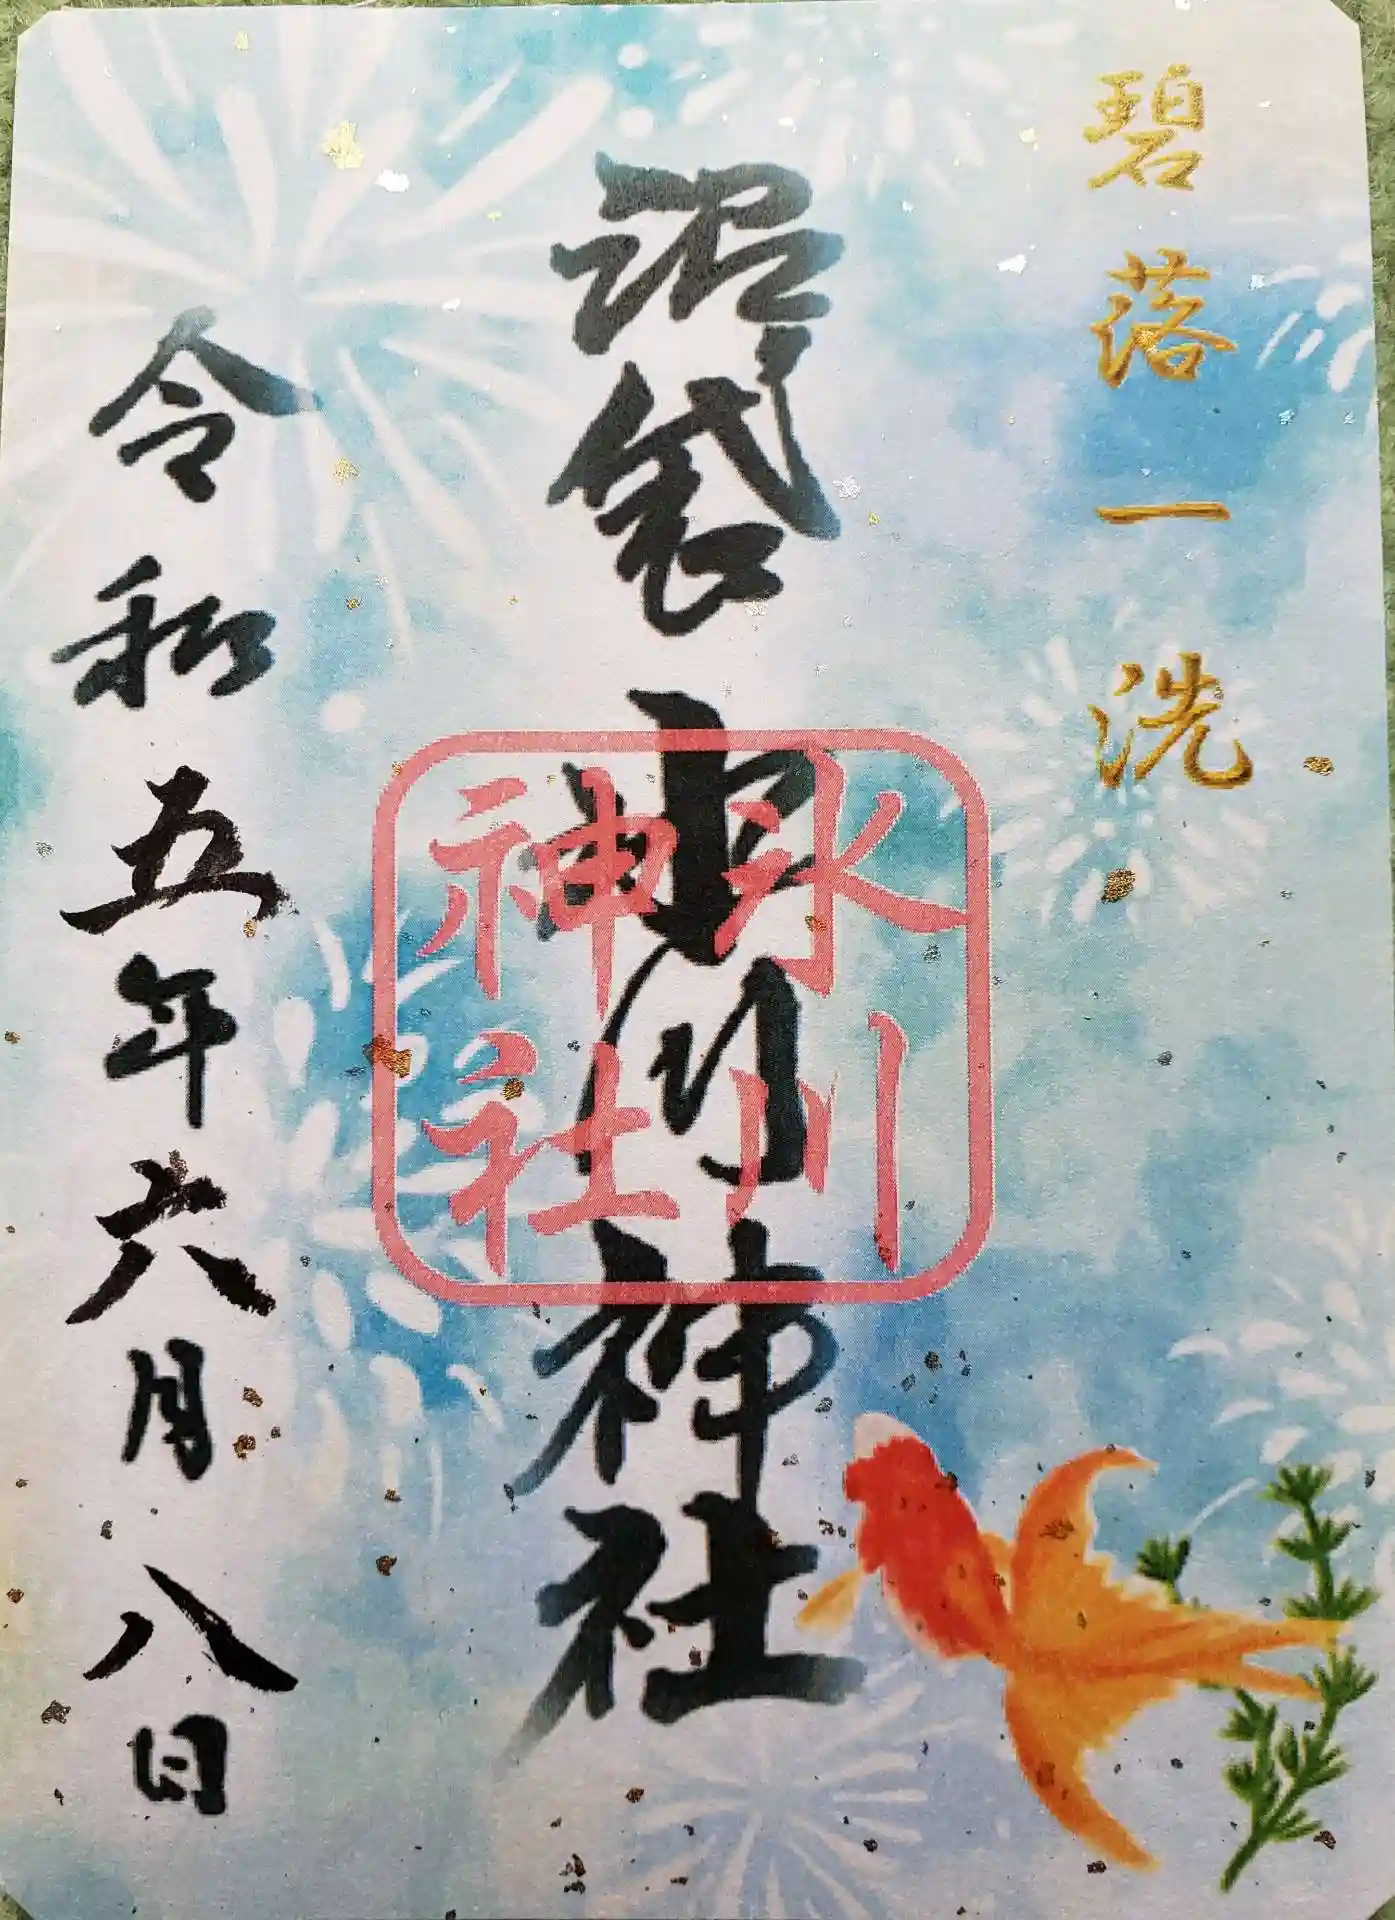 碧落一洗
沼袋氷川神社
氷川
神社
令和五年六月八日